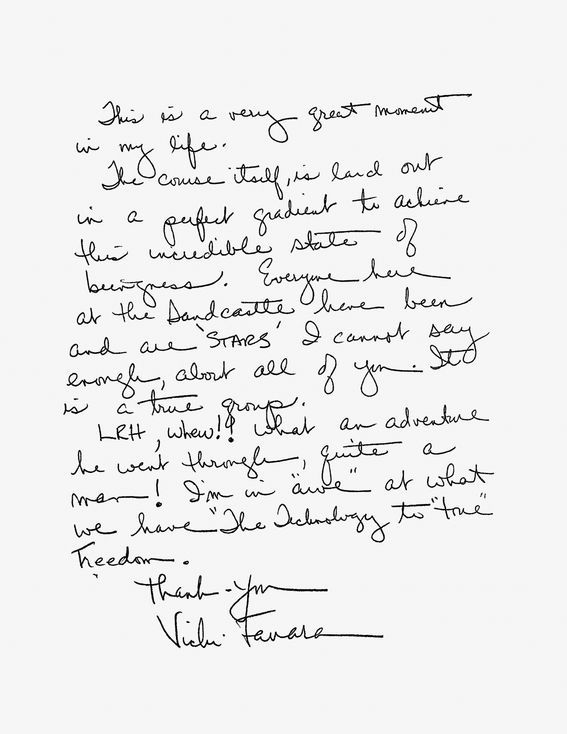 This is a very great moment
in my life.
The course itself, is laid out
in a perfect gradient to achieve
this incredible state of
beingness. Everyone here
at the Sandcastle have been
and are 'STARS' I cannot say
enough, about all of you. It
is a true group.
LRH, whew!! What an adventure
he went through, quite a
man! I'm in "awe" at what
we have "The Technology to "true"
freedom.
Thank-you
Vicki Favara